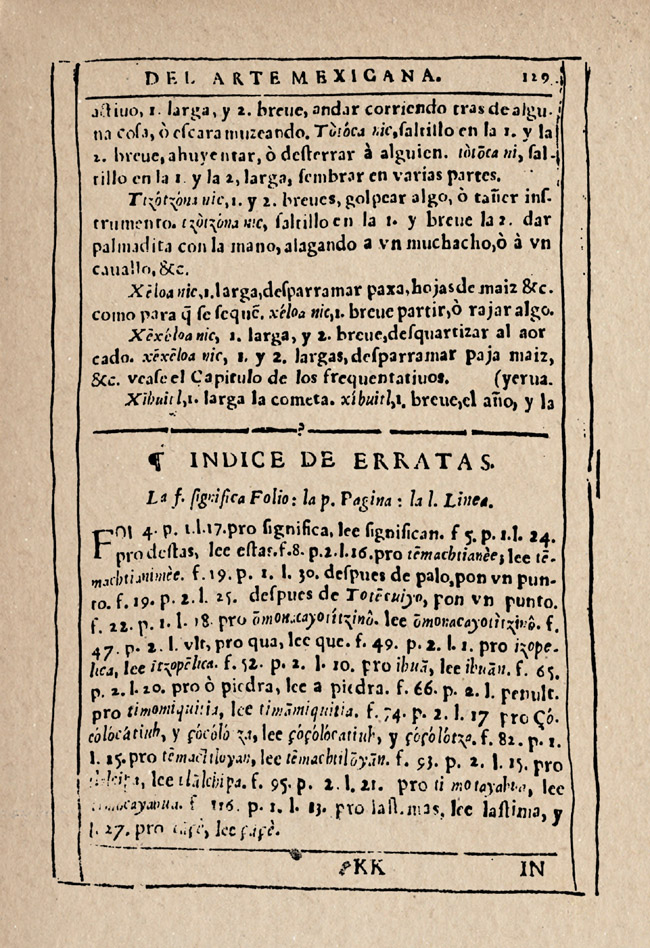 DEL ARTE MEXICANA. 129
actiuo, 1. larga, y 2. breue, andar corriendo tras de algu-
na cosa, ò escaramuzeando. Tòtòca nic, saltillo en la 1. y la
2. breue, ahuyentar, ò desterrar à alguien. tòtōca ni, sal-
tillo en la 1. y la 2, larga, sembrar en varias partes.
Tzòtzóna nic, 1. y 2. breues, golpear algo, ò tañer ins-
trumento. tzòtzóna nic, saltillo en la 1. y breue la 2. dar
palmadita con la mano, alagando a vn muchacho, ò à vn
cauallo, &c.
Xēloa nic, 1. larga, desparramar paxa, hojas de maiz &c.
como para q̃ se sequẽ. xéloa nic, 1. breue partir, ò rajar algo.
Xēxéloa nic, 1. larga, y 2. breue, desquartizar al aor
cado. xēxēloa nic, 1. y 2. largas, desparramar paja maiz,
&c. vease el Capitulo de los frequentatiuos. (yerua.
Xihuitl, 1. larga la cometa. xíhuitl, 1. breue, el año, y la
¶ INDICE DE ERRATAS.
La f. significa Folio: la p. Pagina: la l. Linea.
FOl 4. p. 1. l. 17. pro significa, lee significan. f 5. p. 1. l. 24.
pro destas, lee estas. f. 8. p. 2. l. 16. pro tēmachtianèe; lee tē-
machtianimèe. f. 19. p. 1. l. 30. despues de palo, pon vn pun-
to. f. 19. p. 2. l. 25. despues de Totēcuiyo, pon vn punto.
f. 22. p. 1. l. 18. pro ōmonacayotìtzinô. lee ōmonacayotìtzinô. f.
47. p. 2. l. vlt, pro qua, lee que. f. 49. p. 2. l. 1. pro izope-
lica, lee itzopēlica. f. 52. p. 2. l. 10. pro ihuā, lee ihuān. f. 65.
p. 2. l. 20. pro ò piedra, lee a piedra. f. 66. p. 2. l. penult.
pro timomiquitia, lee timāmiquitia. f. 74. p. 2. l. 17 pro Ço-
côlòcatiuh, y çócólò za, lee çoçolòcatiuh, y çoçolôtza. f. 82. p. 1.
l. 15. pro tēmachtiloyan, lee tēmachtilōyān. f. 93. p. 2. l. 15. pro
lee tlālchipa. f. 95. p. 2. l. 21. pro ti motayahua, lee
f 116. p. 1. l. 13. pro lastimas, lee lastima, y
l. 27. pro lee
KK IN